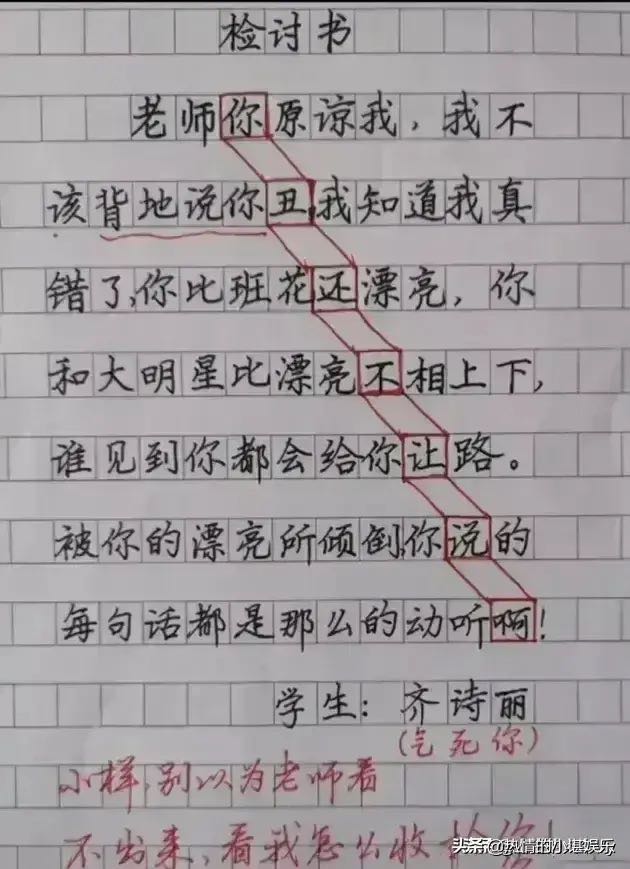 检讨书
老师你原谅我，我不
该背地说你丑，我知道我真
错了，你比班花还漂亮，你
和大明星比漂亮不相上下，
谁见到你都会给你让路。
被你的漂亮所倾倒，你说的
每句话都是那么的动听啊！
学生：齐诗丽
（气死你）
小样，别以为老师看
不出来，看我怎么收拾你！
头条 @热情的小湛娱乐